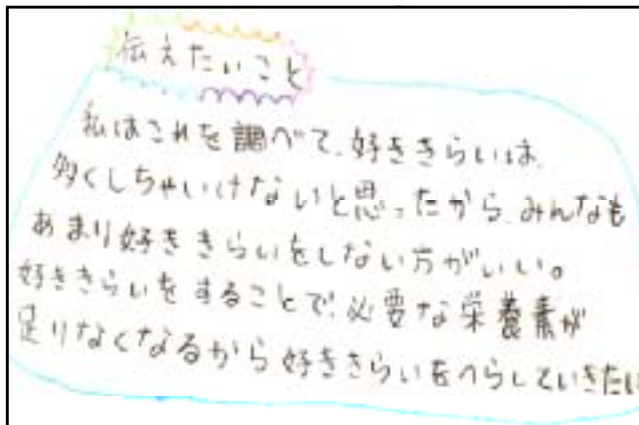 伝えたいこと
私はこれを調べて、好ききらいは、
多くしちゃいけないと思ったから、みんなも
あまり好ききらいをしない方がいい。
好ききらいをすることで、必要な栄養素が
足りなくなるから好ききらいをへらしていきたい